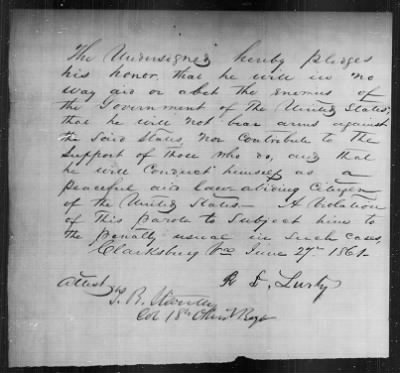 The Undersigned hereby pledges
his honor that he will in no
way aid or abet the enemies of
the Government of the United States,
that he will not bear arms against
the said States, nor contribute to the
support of those who do, and that
he will conduct himself as a
peaceful and law abiding citizen
of the United States — A Violation
of this parole to subject him to
the penalty usual in such cases,
Clarksburg Va June 27th 1861.
R D. Lurty
Attest
T. R. Stanley
Col 18th Ohio V Regt